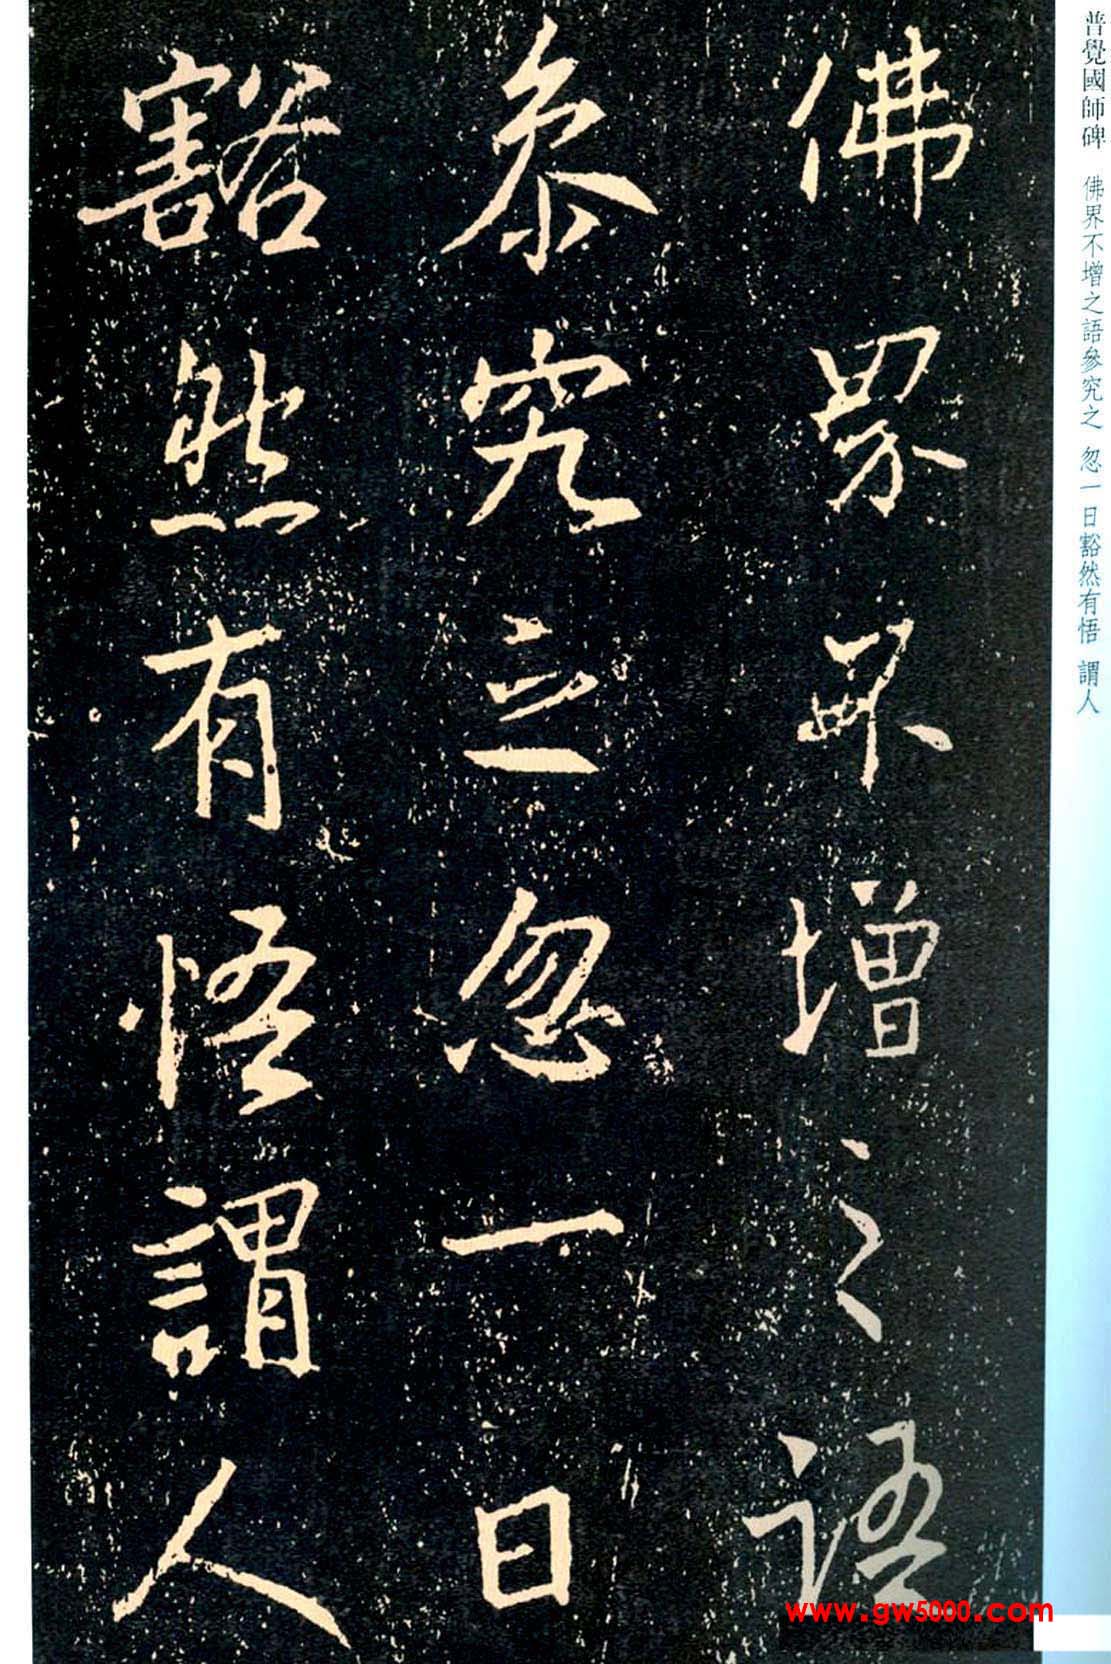 普覺國師碑 佛界不增之語參究之 忽一日豁然有悟 謂人
佛界不增之語
叅究之忽一日
豁然有悟謂人
www.gw5000.com